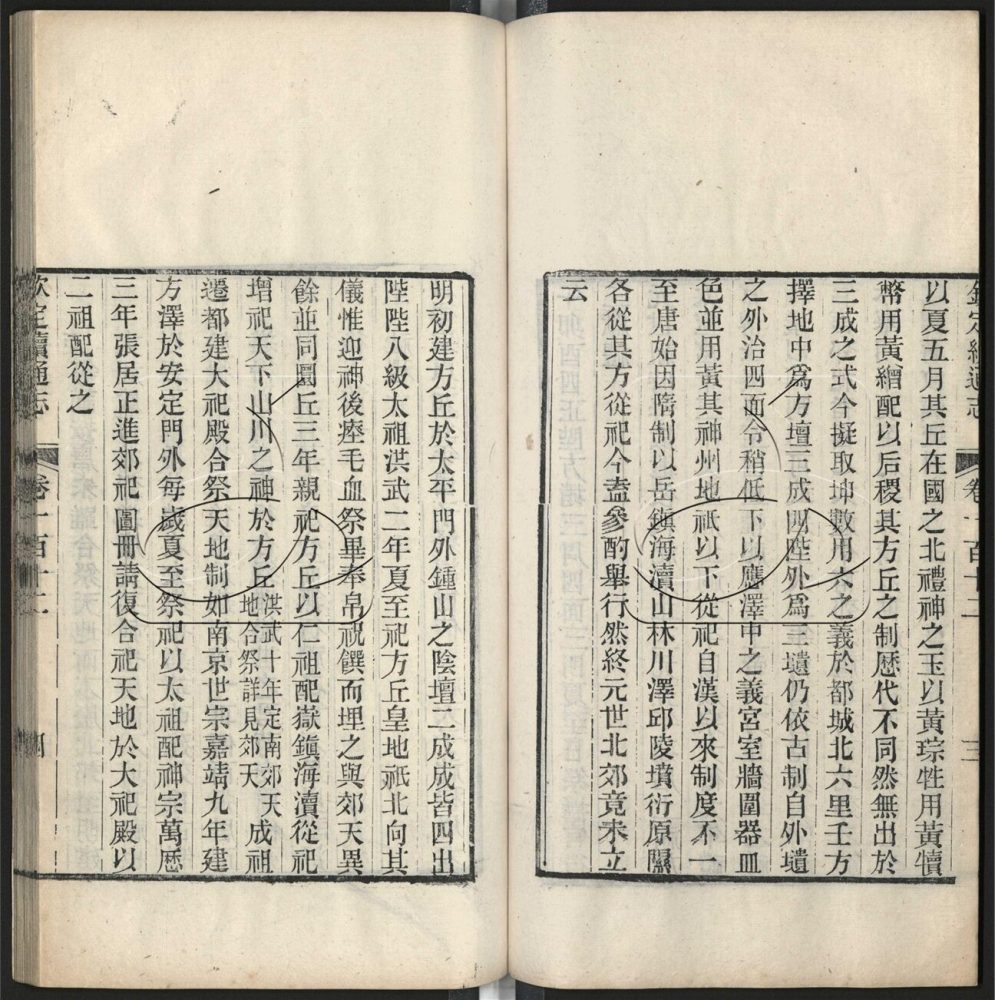 欽定續通志 卷一百十二 三
以夏五月其丘在國之北禮神之玉以黃琮牲用黃犢
幣用黃繒配以后稷其方丘之制歷代不同然無出於
三成之式今擬取坤數用六之義於都城北六里壬方
擇地中爲方壇三成四陛外爲三壝仍依古制自外壝
之外治四面令稍低下以應澤中之義宮室牆圍器皿
色並用黃其神州地祇以下從祀自漢以來制度不一
至唐始因隋制以岳鎭海瀆山林川澤邱陵墳衍原隰
各從其方從祀今葢參酌舉行然終元世北郊竟未立
云
明初建方丘於太平門外鍾山之陰壇二成成皆四出
陛陛八級太祖洪武二年夏至祀方丘皇地祇北向其
儀惟迎神後瘞毛血祭畢奉帛祝饌而埋之與郊天異
餘並同圜丘三年親祀方丘以仁祖配嶽鎭海瀆從祀
增祀天下山川之神於方丘洪武十年定南郊天地合祭詳見郊天成祖
遷都建大祀殿合祭天地制如南京世宗嘉靖九年建
方澤於安定門外每歲夏至祭祀以太祖配神宗萬歷
三年張居正進郊祀圖冊請復合祀天地於大祀殿以
二祖配從之
欽定續通志 卷一百十二 四